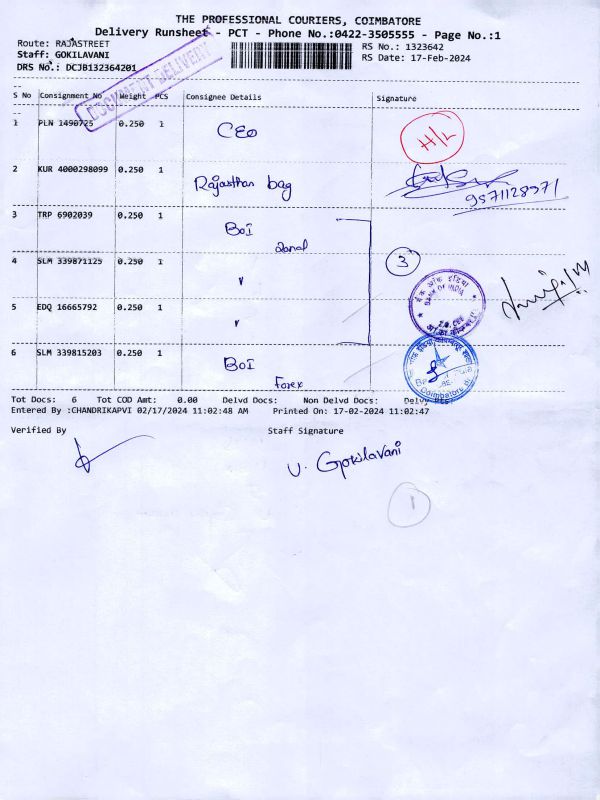 THE PROFESSIONAL COURIERS, COIMBATORE
Delivery Runsheet - PCT - Phone No.:0422-3505555 - Page No.:1
Route: RAJASTREET
RS No.: 1323642
Staff: GOKILAVANI
RS Date: 17-Feb-2024
DRS No.: DCJB132364201
DOCUMENT DELIVERY
S No Consignment No Weight PCS Consignee Details Signature
1 PLN 1490725 0.250 1 CEO H/L
2 KUR 4000298099 0.250 1 Rajasthan bag
9571128971
3 TRP 6902039 0.250 1 BOI
Zonal
4 SLM 339871125 0.250 1 " 3
बैंक ऑफ इंडिया
BANK OF INDIA
5 EDQ 16665792 0.250 1 "
6 SLM 339815203 0.250 1 BOI
Forex
Coimbatore
Tot Docs: 6 Tot COD Amt: 0.00 Delvd Docs: Non Delvd Docs:
Entered By :CHANDRIKAPVI 02/17/2024 11:02:48 AM Printed On: 17-02-2024 11:02:47
Verified By Staff Signature
U. Gokilavani
1